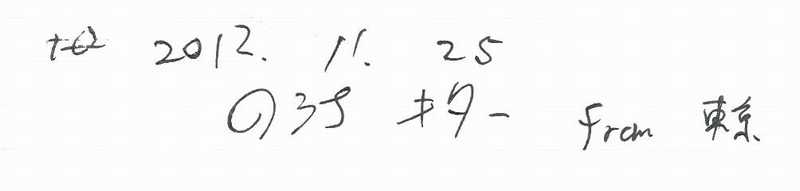 2012. 11. 25
キター from 東京